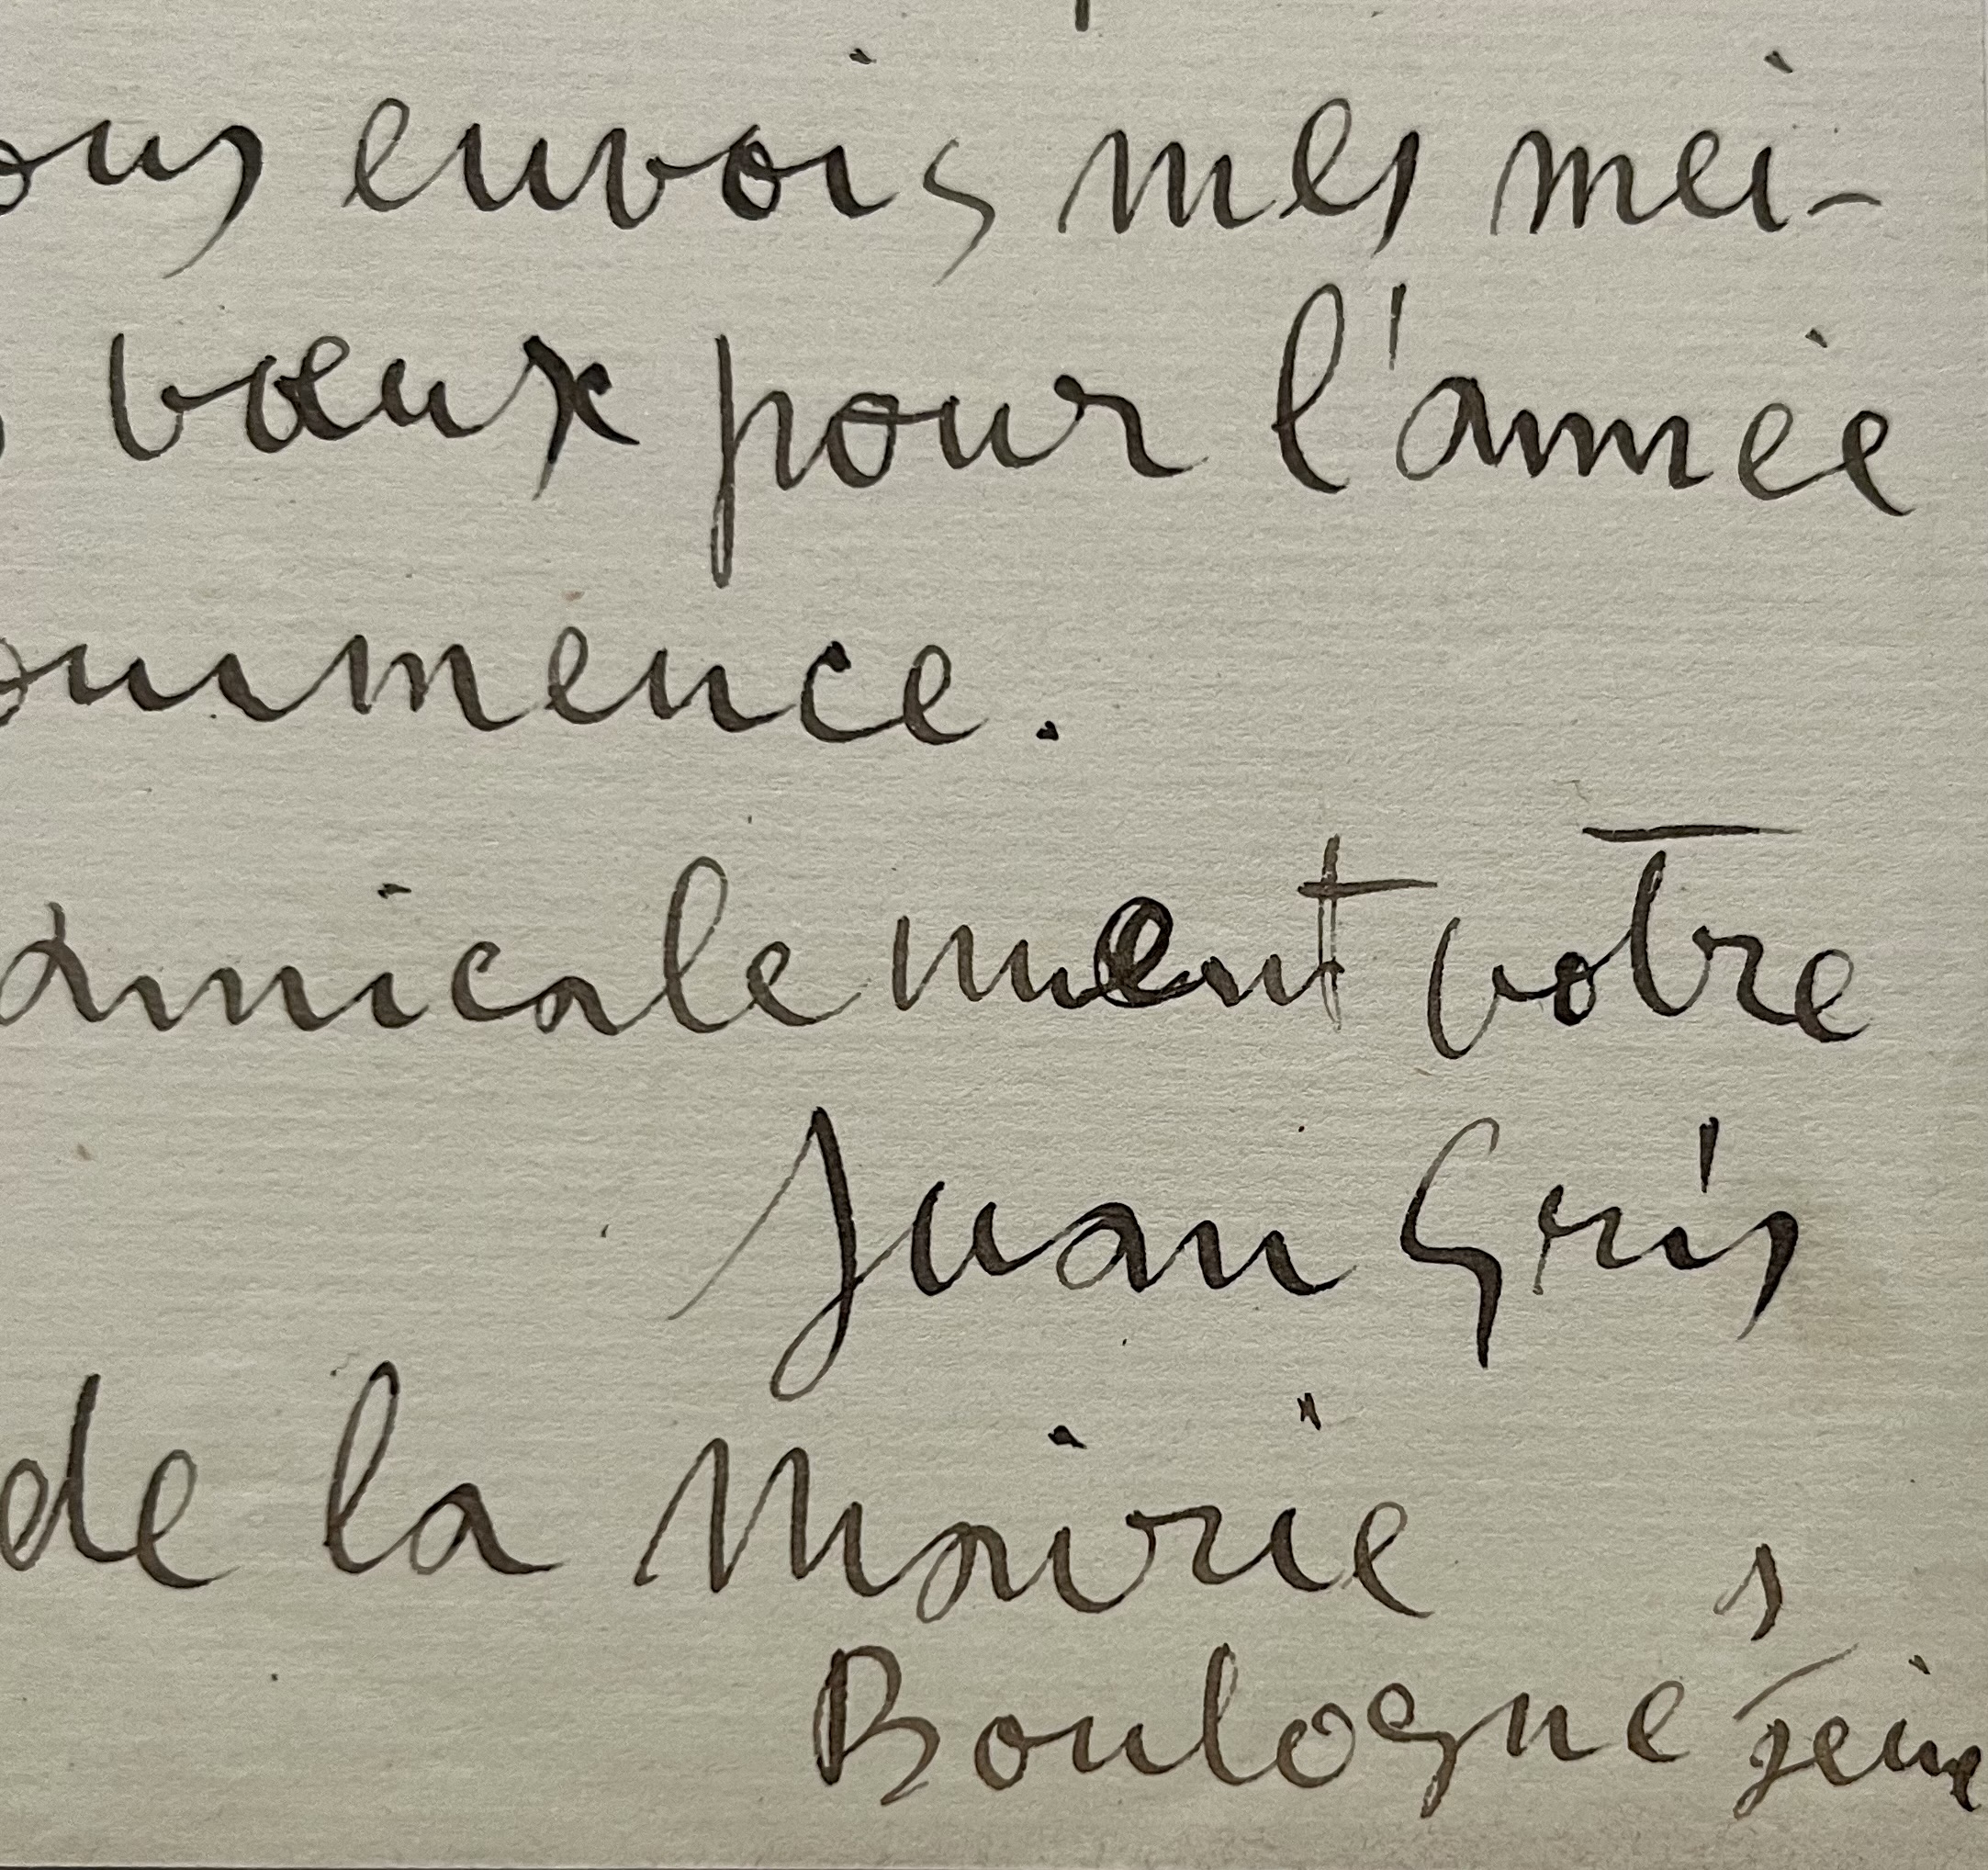 ous envois mes mei-
vœux pour l'année
ommence.
amicalement votre
Juan Gris
de la Mairie
Boulogne s/Seine